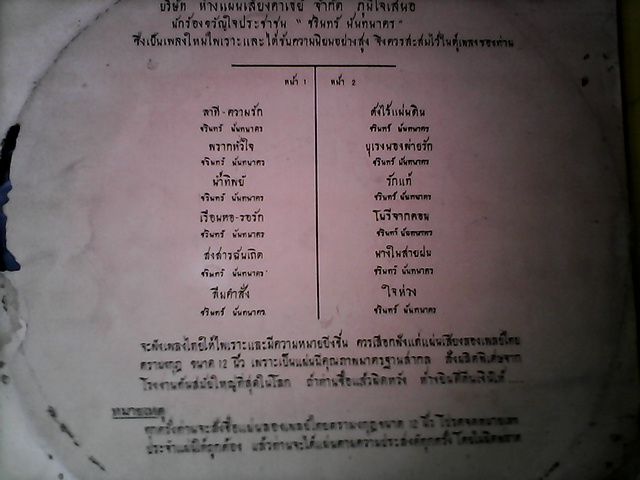 บริษัท ห้างแผ่นเสียงคาเธย์ จำกัด ภูมิใจเสนอ
นักร้องขวัญใจประชาชน " ชรินทร์ นันทนาคร "
ซึ่งเป็นเพลงใหม่ไพเราะและได้รับความนิยมอย่างสูง จึงควรสะสมไว้ในตู้เพลงของท่าน
หน้า 1 หน้า 2
ลาที-ความรัก ดังไร้แผ่นดิน
ชรินทร์ นันทนาคร ชรินทร์ นันทนาคร
พรากหัวใจ บุเรงนองพ่ายรัก
ชรินทร์ นันทนาคร ชรินทร์ นันทนาคร
น้ำทิพย์ รักแท้
ชรินทร์ นันทนาคร ชรินทร์ นันทนาคร
เรือนหอ-รอรัก โนรีจากคอน
ชรินทร์ นันทนาคร ชรินทร์ นันทนาคร
สงสารฉันเถิด นางในสายฝน
ชรินทร์ นันทนาคร ชรินทร์ นันทนาคร
ลืมคำสั่ง ใจห่วง
ชรินทร์ นันทนาคร ชรินทร์ นันทนาคร
จะฟังเพลงไทยให้ไพเราะและมีความหมายยิ่งขึ้น ควรเลือกฟังแต่แผ่นเสียงลองเพลย์ไทย
ตรามงกุฎ ขนาด 12 นิ้ว เพราะเป็นแผ่นมีคุณภาพมาตรฐานสากล สั่งผลิตพิเศษจาก
โรงงานทันสมัยใหญ่ที่สุดในโลก ถ้าท่านซื้อแล้วผิดหวัง ห้างยินดีคืนเงินให้ .....
หมายเหตุ
ทุกครั้งท่านจะสั่งซื้อแผ่นลองเพลย์ไทยตรามงกุฎขนาด 12 นิ้ว โปรดจดหมายเลข
ประจำแผ่นให้ถูกต้อง แล้วท่านจะได้แผ่นตามความประสงค์ทุกครั้งโดยไม่ผิดพลาด